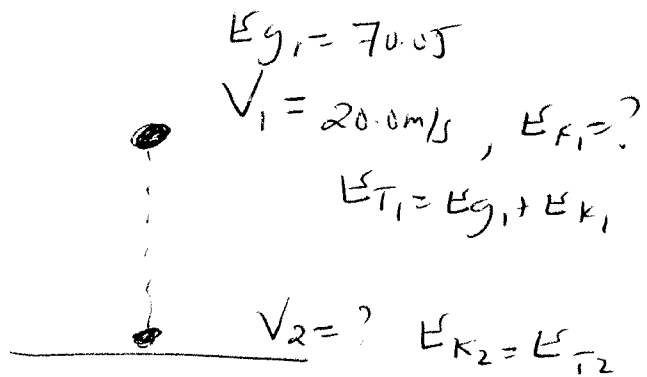 Eg₁ = 70.0J
V₁ = 20.0m/s , EK₁ = ?
ET₁ = Eg₁ + EK₁
V₂ = ? EK₂ = ET₂